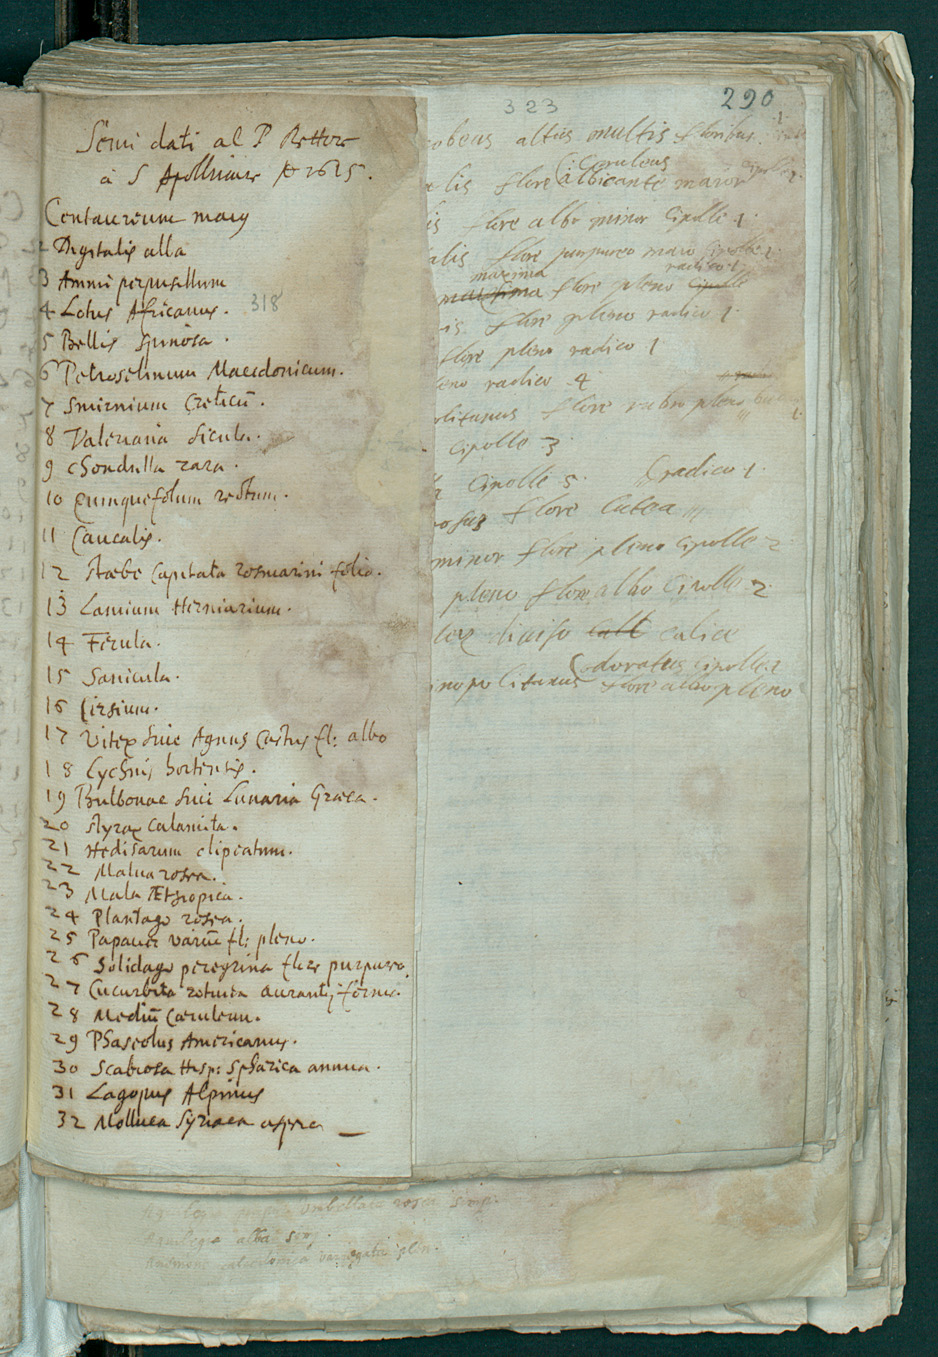 323
290
Semi dati al P Rettore
à S Apollinare 1625.
Centaureum maiy
2 Digitalis alba
3 Ammi perpusillum
4 Lotus Africanus. 318
5 Bellis spinosa.
6 Petroselinum Macedonicum.
7 Smirnium Creticū.
8 Valeriana Sicula.
9 Chondrilla rara.
10 Quinquefolium rectum.
11 Caucalis.
12 Stæbe Capitata rosmarini folio.
13 Lamium Herniarium.
14 Ferula.
15 Sanicula.
16 Cirsium.
17 Vitex sive Agnus Castus fl: albo
18 Lychnis hortensis.
19 Bulbonac sive Lunaria Græca.
20 Styrax calamita.
21 Hedisarum clipeatum.
22 Malva rosea.
23 Mala Æthiopica.
24 Plantago rosea.
25 Papauer variū fl: pleno.
26 Solidago peregrina flore purpureo.
27 Cucurbita rotunda aurantij forma.
28 Mediū Cæruleum.
29 Phaseolus Americanus.
30 Scabiosa Hisp: Sphærica annua.
31 Lagopus Alpinus
32 Molluca Syriaca aspera
obeus altus multis floribus
Ceruleus
alis flore albicante maior
is flore albo minor Cipolle 1.
alis flore purpureo maio Cipolle
maxima radice 1.
maxima flore pleno Cipolle
is. flore pleno radice 1.
flore pleno radice 1
eno radice 4
olitanus flore rubro pleno
cipolle 3
Cipolle 5. radice 1.
osus flore lutea
minor flore pleno cipolle 2
pleno flore albo Cipolle 2
calice
doratus cipolla
nopolitanus flore albo pleno
umbellata rosea
Aquilegia alba
Anemone calcedonica variegata plen.